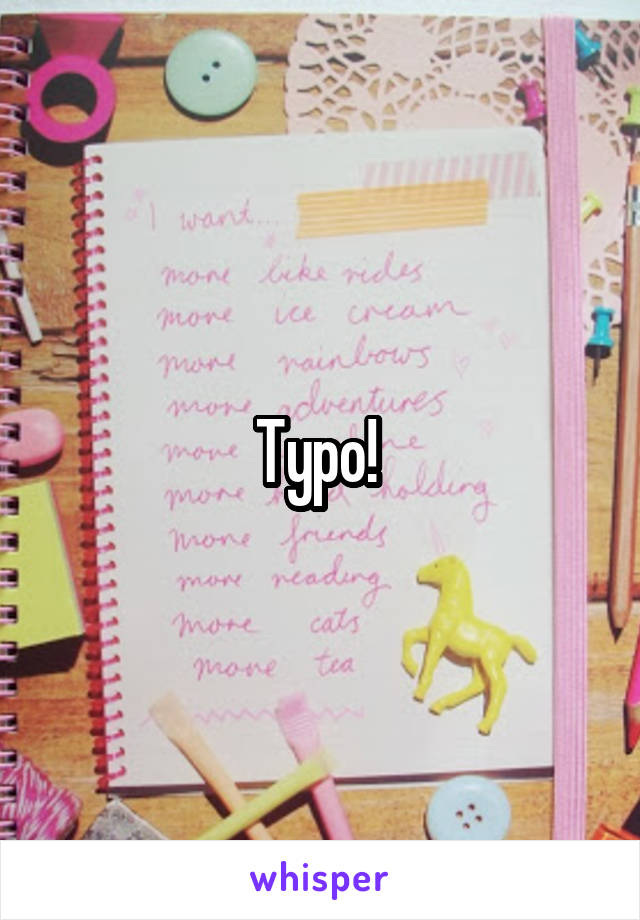 I want...
more bike rides
more ice cream
more rainbows
more adventures
Typo!
more
more holding
more friends
more reading
more cats
more tea
whisper